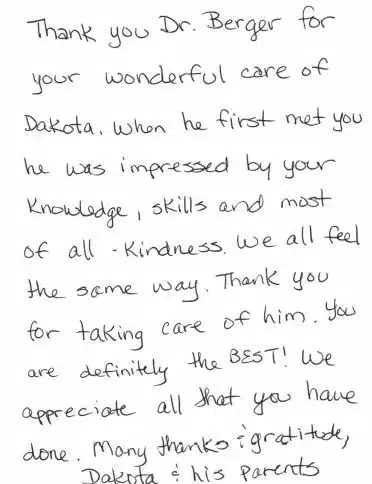 Thank you Dr. Berger for
your wonderful care of
Dakota. When he first met you
he was impressed by your
knowledge, skills and most
of all - Kindness. We all feel
the same way. Thank you
for taking care of him. You
are definitely the BEST! We
appreciate all that you have
done. Many thanks & gratitude,
Dakota & his parents